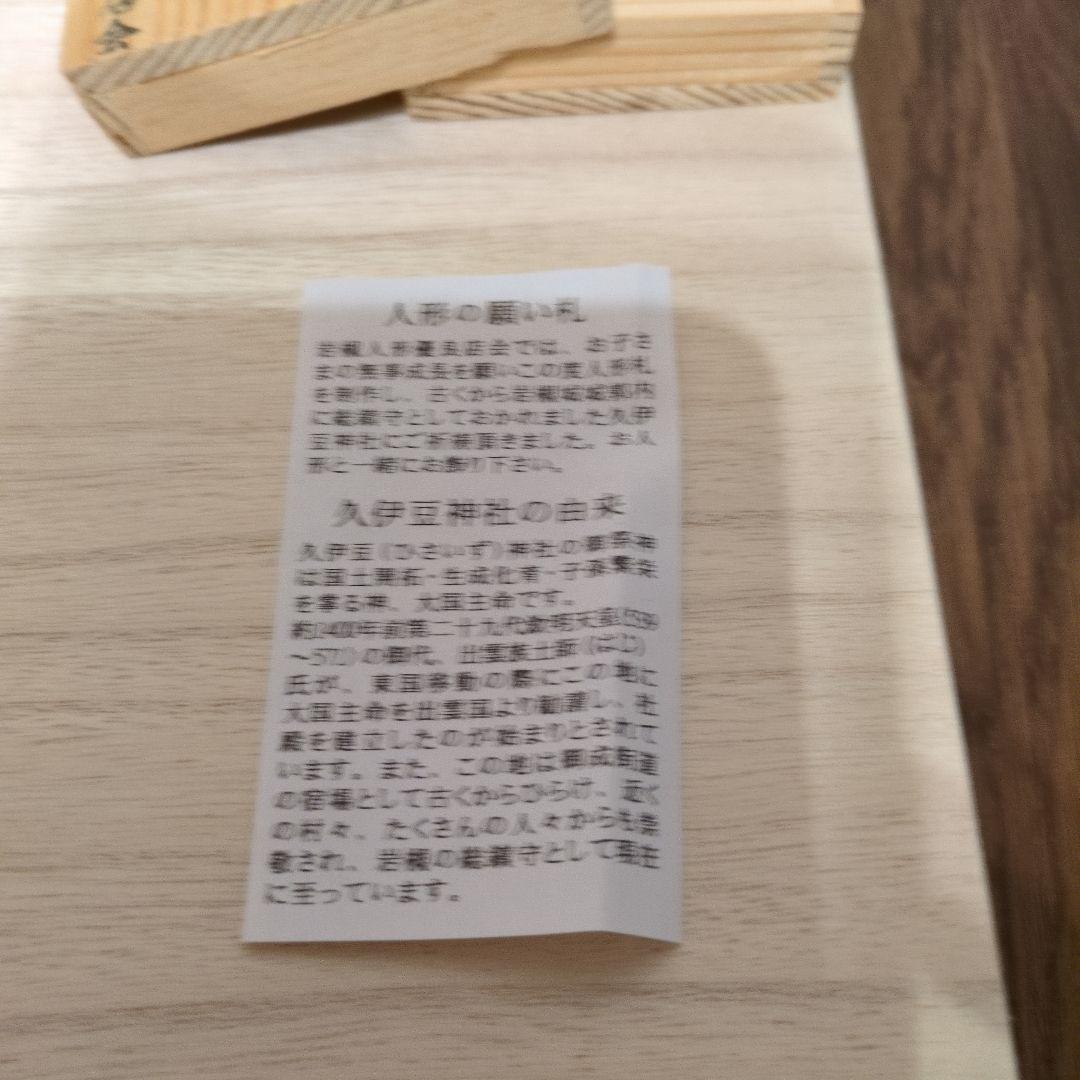 人形の願い札
岩槻人形優良店会では、お子さ
まの無事成長を願いこの度人形札
を制作し、古くから岩槻城城郭内
に総鎮守としておかれました久伊
豆神社にご祈祷頂きました。お人
形と一緒にお飾り下さい。
久伊豆神社の由来
久伊豆(ひさいず)神社の御祭神
は国土開拓・生成化育・子孫繁栄
を掌る神、大国主命です。
約1400年前第二十九代欽明天皇(539
〜571)の御代、出雲族土師(はじ)
氏が、東国移動の際にこの地に
大国主命を出雲国より勧請し、社
殿を建立したのが始まりとされて
います。また、この地は御成街道
の宿場として古くからひらけ、近く
の村々、たくさんの人々からも崇
敬され、岩槻の総鎮守として現在
に至っています。